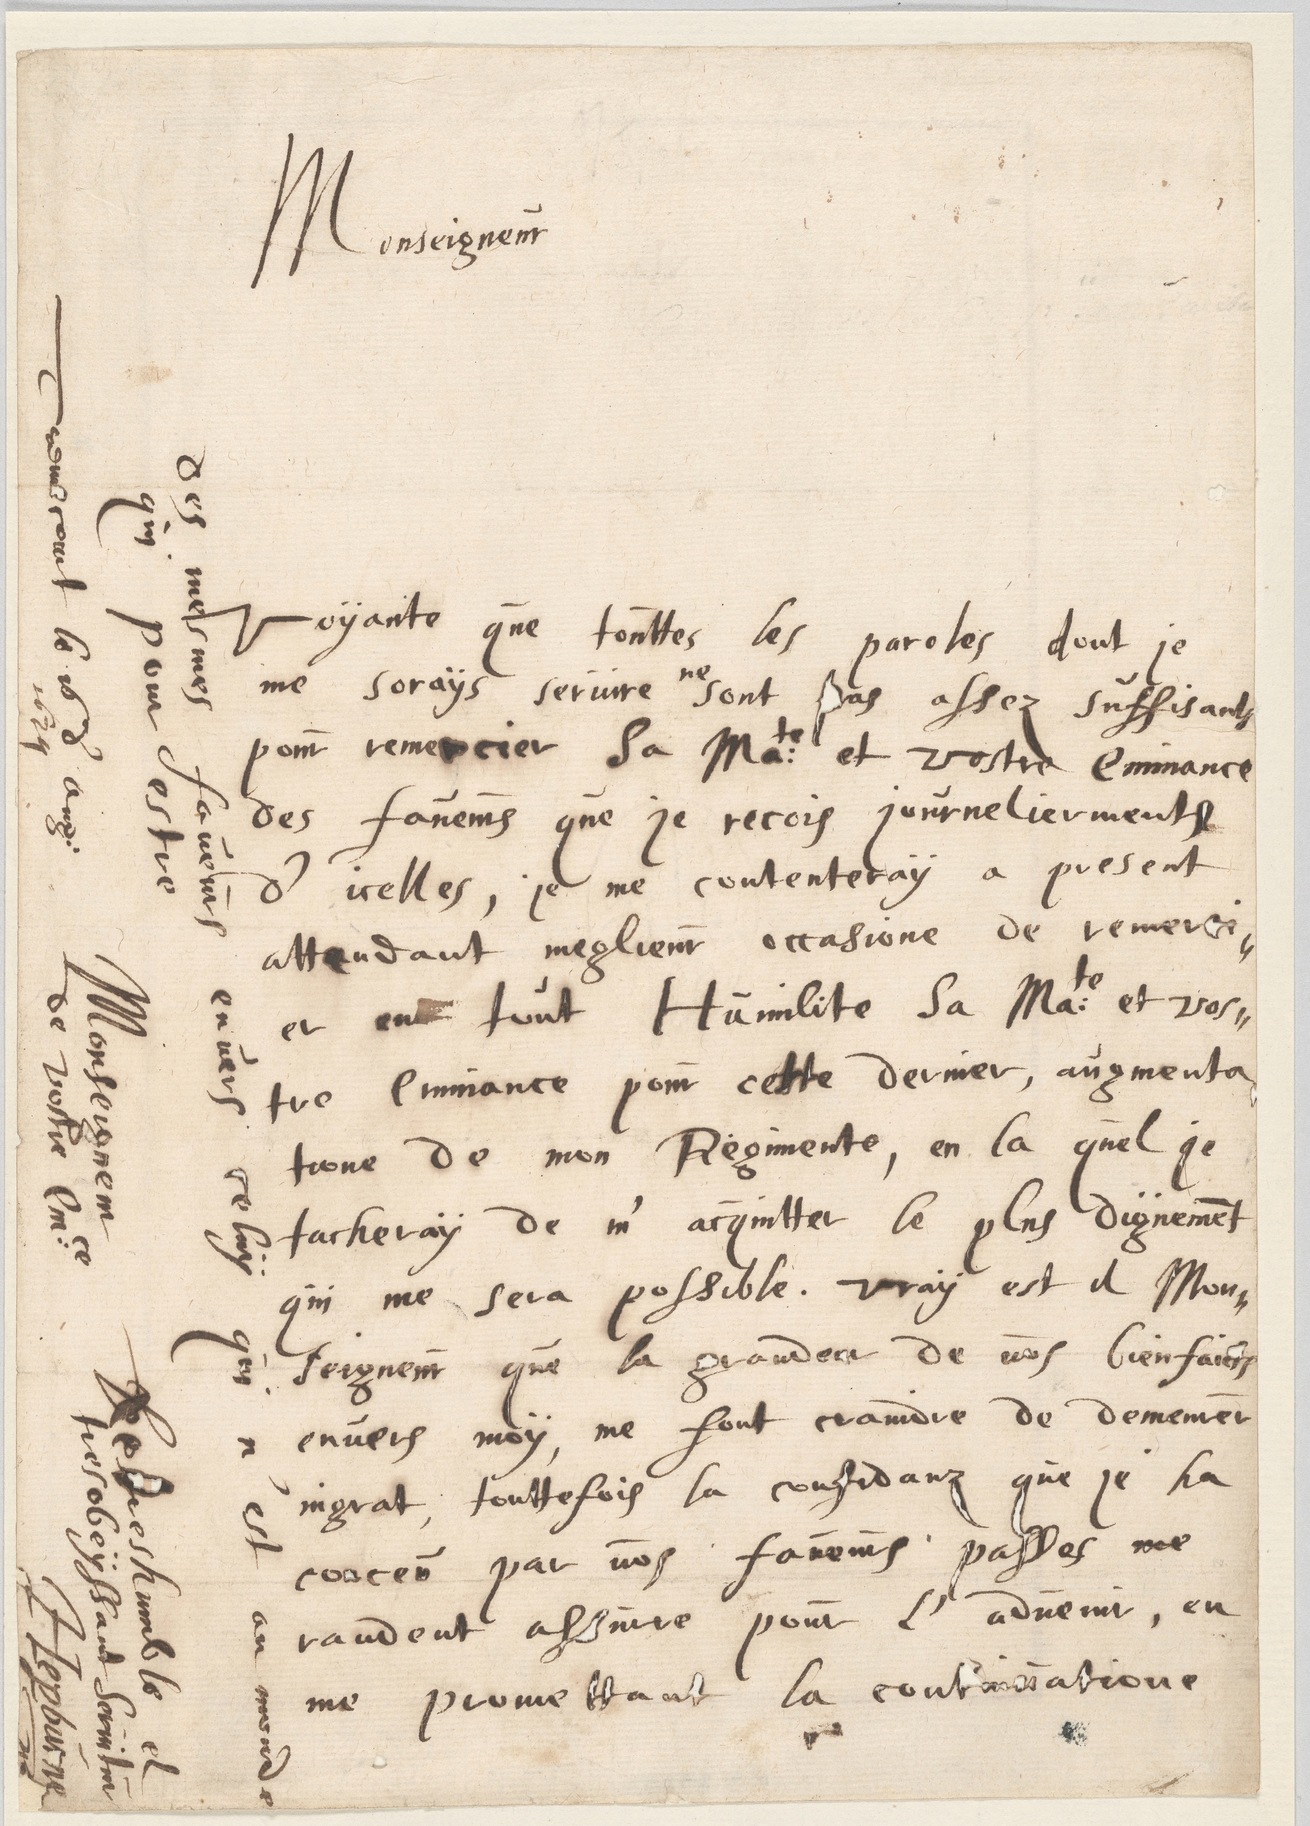 Monseigneur
Voyante que touttes les paroles dont je
me sorays seruire ne sont pas assez suffisants
pour remercier sa Ma:te et vostre Eminance
des faueurs que je recois journelierments
d' icelles, je me contenteray a present
attendant meglieur occasione de remerci„
er en tout Humilite sa Ma:te et vos„
tre Eminance pour cette dernier, augmenta
tione de mon Regimente, en la quel je
tacheray de m' acquitter le plus dignement
qui me sera possible. vray est il Mon„
seigneur que la grandeur de vos bienfaicts
enuers moy, me font craindre de demeurer
ingrat, touttefois la confidanz que je ha
conceu par vos faueurs passes me
raudent assure pour l' aduenir, en
me promettant la continuatione
des mesmes faueurs enuers celuy qui n' est au monde
qui pour estre
Monseigneur
de vostre Em:ce
Le treshumble et
tresobeyssant seruiteur
Hepburne
le 18 d' aug:
1634